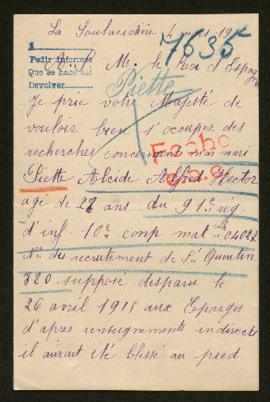 La Soulardière le
7635
1
Pedir informes
Que se hace así
Devolver
A S. M. le Roi d'Espagne
Piette
Je prie votre Majesté de
vouloir bien s'occuper des
recherches concernant mon mari
Fecho
Piette Alcide Alfred Hector
agé de 28 ans du 91e rég
d'inf. 10e comp mat 04022
No du recrutement de St Quentin
380 supposé disparu le
26 avril 1915 aux Eparges
d'après renseignements indirects
il aurait été blessé au pied